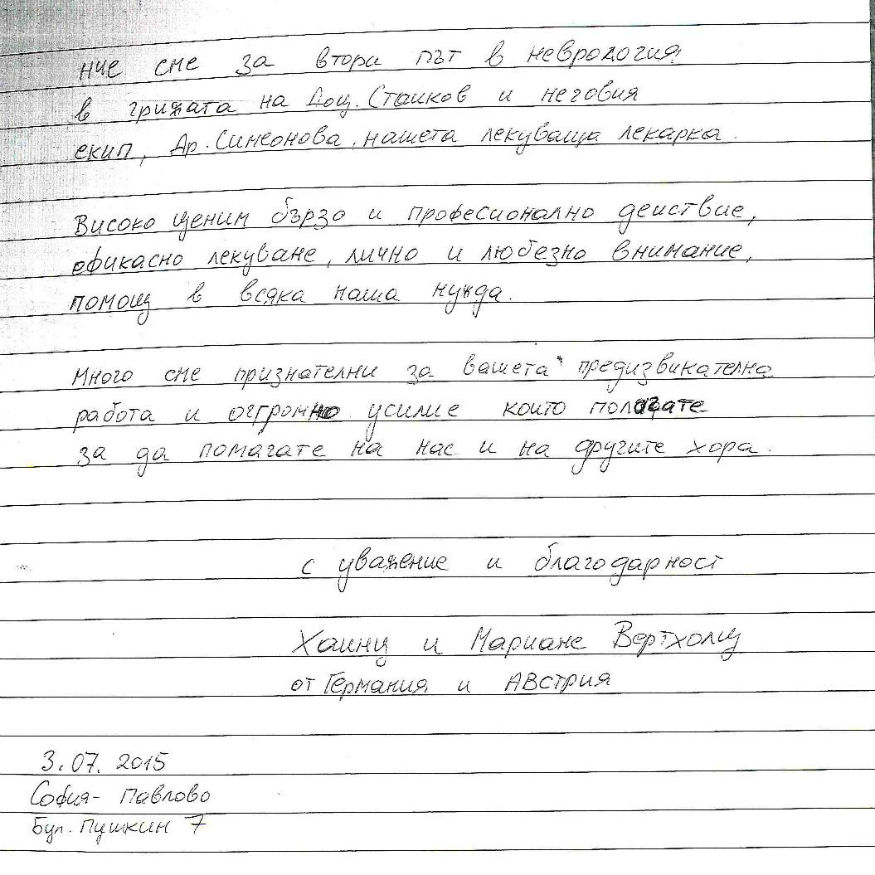 ние сме за втори път в неврология
в грижата на Доц. Сташков и неговия
екип, Др. Симеонова, нашета лекуваща лекарка.
Високо ценим бързо и професионално деиствие,
ефикасно лекуване, лично и любезно внимание,
помощ в всяка наша нужда.
Много сме признателни за вашета предизвикателна
работа и оггромно усилие което полагате
за да помагате на нас и на другите хора.
с уважение и благодарност
Хаинц и Мариане Вертхолц
от Германия и Австрия
3.07. 2015
София- Павлово
Бул. Пушкин 7